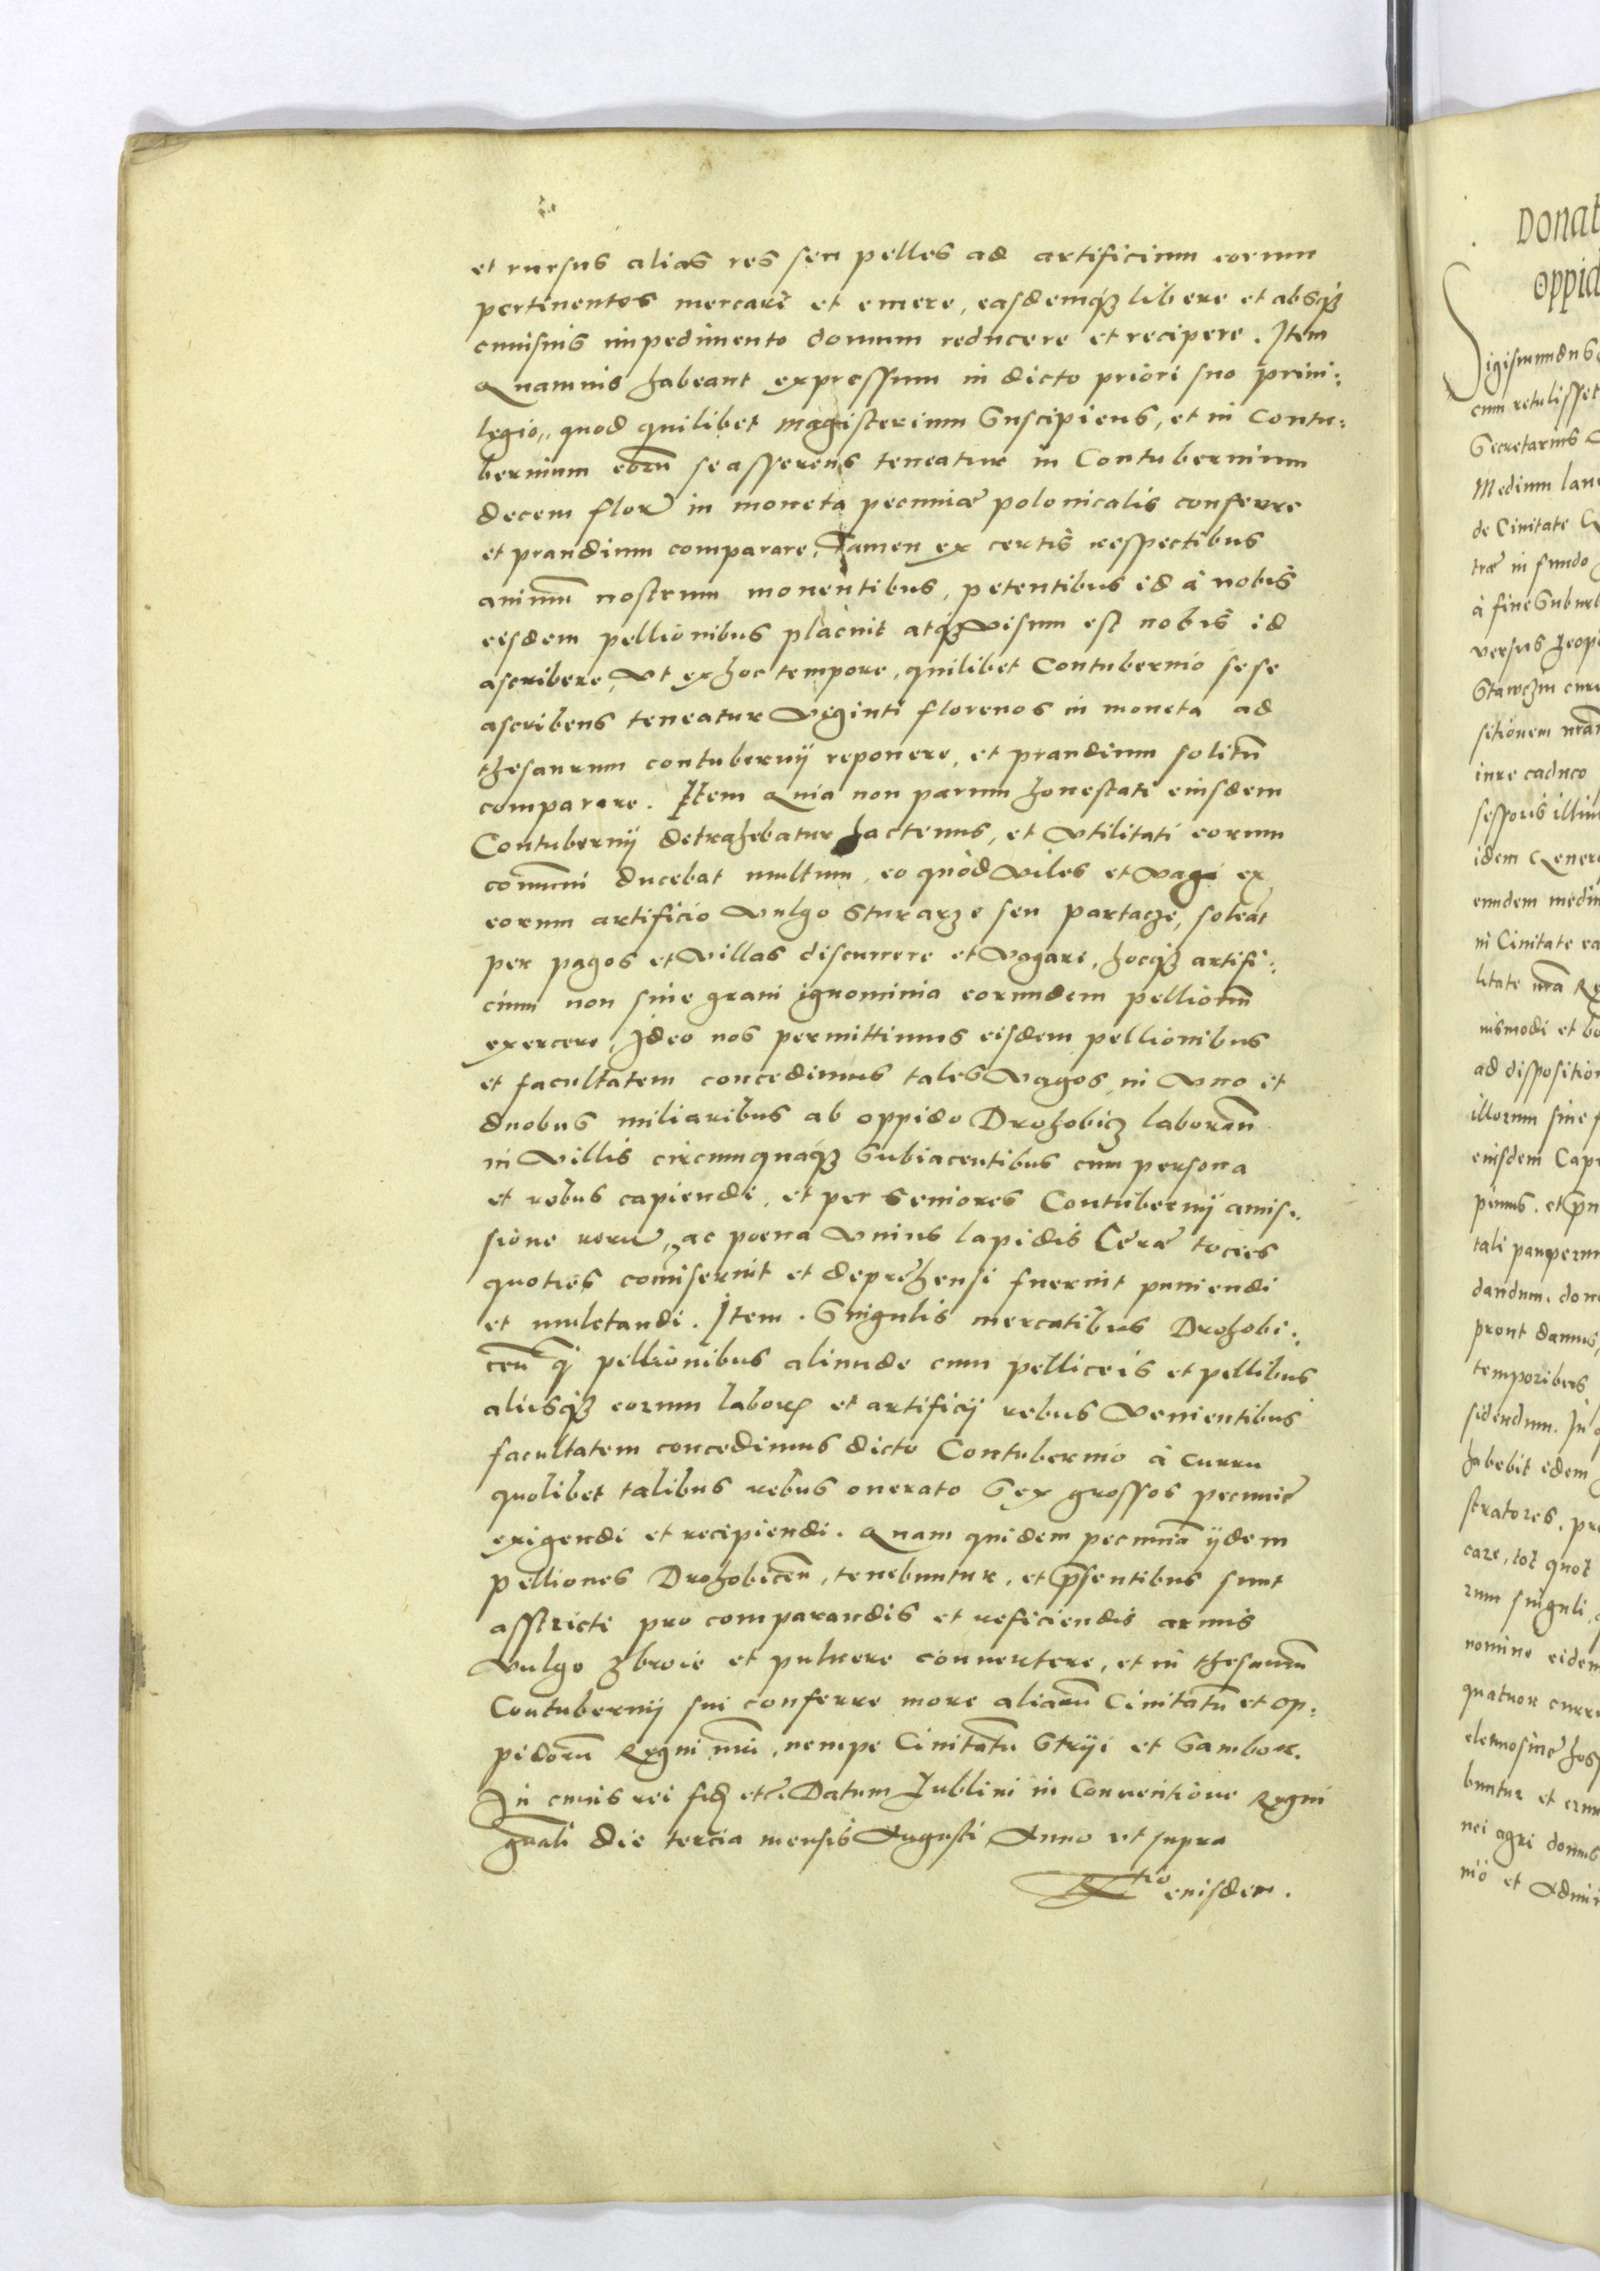 et rursus alias res seu pelles ad artificium eorum
pertinentes mercari et emere, easdemq₃ libere et absq₃
cuiusuis impedimento domum reducere et recipere. Item
Quamuis habeant expressum in dicto priori suo priui:
legio,, quod quilibet magisterium suscipiens, et in Contu:
bernium eorũ se asserens teneatur in Contubernium
decem flor in moneta pecuniæ polonicalis conferre
et prandium comparare, Tamen ex certis respectibus
animũ nostrum mouentibus, petentibus id à nobis
eisdem pellionibus placuit atq₃ visum est nobis id
ascribere, Vt ex hoc tempore, quilibet Contubernio sese
ascribens teneatur viginti florenos in moneta ad
thesaurum contubernij reponere, et prandium solitũ
comparare. Item Quia non parum honestati eiusdem
Contubernij detrahebatur hactenus, et vtilitati eorum
cõmuni ducebat multum, eo quòd viles et vagi ex
eorum artificio vulgo sturarze seu partacze, soleãt
per pagos et villas discurrere et vagari, hocq₃ artifi:
cium non sine graui ignominia eorundem pellionũ
exercere, Ideo nos permittimus eisdem pellionibus
et facultatem concedimus tales vagos, in vno et
duobus miliaribus ab oppido Drohobicz laborãn
in villis circumquaq₃ subiacentibus cum persona
et rebus capiendi, et per seniores Contubernij amis:
sione rerũ, ac poena vnius lapidis Ceræ tocies
quoties cõmiserint et deprehensi fuerint puniendi
et mulctandi. Item. Singulis mercatibus Drohobi:
cen̄ q̃ pellionibus aliunde cum pelliceis et pellibus
alijsq₃ eorum laboris et artificij rebus venientibus
facultatem concedimus dicto Contubernio à curru
quolibet talibus rebus onerato sex grossos pecuniæ
exigendi et recipiendi. Quam quidem pecuniã ijdem
pelliones Drohobicen̄, tenebuntur, et p̄sentibus sunt
asstricti pro comparandis et reficiendis armis
vulgo zbroie et puluere conuertere, et in thesaurũ
Contubernij sui conferre more aliarũ Ciuitatũ et op:
pidorũ Regni nr̃i, nempe Ciuitatũ Stryi et Sambor.
In cuius rei fid etc. Datum Lublini in Conuentione Regni
gn̄ali die tercia mensis Augusti Anno vt supra
Rtio eiusdem.
Donat
oppid
Sigismundus
cum retulisset
Secretarius
Medium lane
de Ciuitate
træ in fundo
à fine Suburb
versus
sitionem nr̃am
iure caduco
sessoris illiu
idem Gener
eundem mediu
in Ciuitate ea
litate nr̃a
iusmodi et bo
ad disposition
illorum sine
eiusdem Cape
pimus, et p̄n
tali pauperum
dandum, don
prout damus,
temporibus
sidendum. In q
habebit idem
stratores, pre
care, tot quot
rum singuli
nomine eidem
quatuor curru
elemosinæ hos
buntur et erun
nei agri domus
nio et Admin